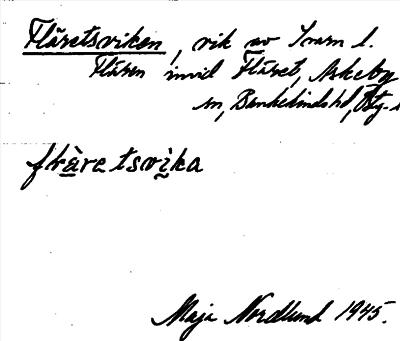 Fläretsviken, vik av Svarn l.
Fläten invid Fläret, Askeby
sn, Bankekinds hd, Ög.
fkàretsvìka
Maja Nordlund 1945.